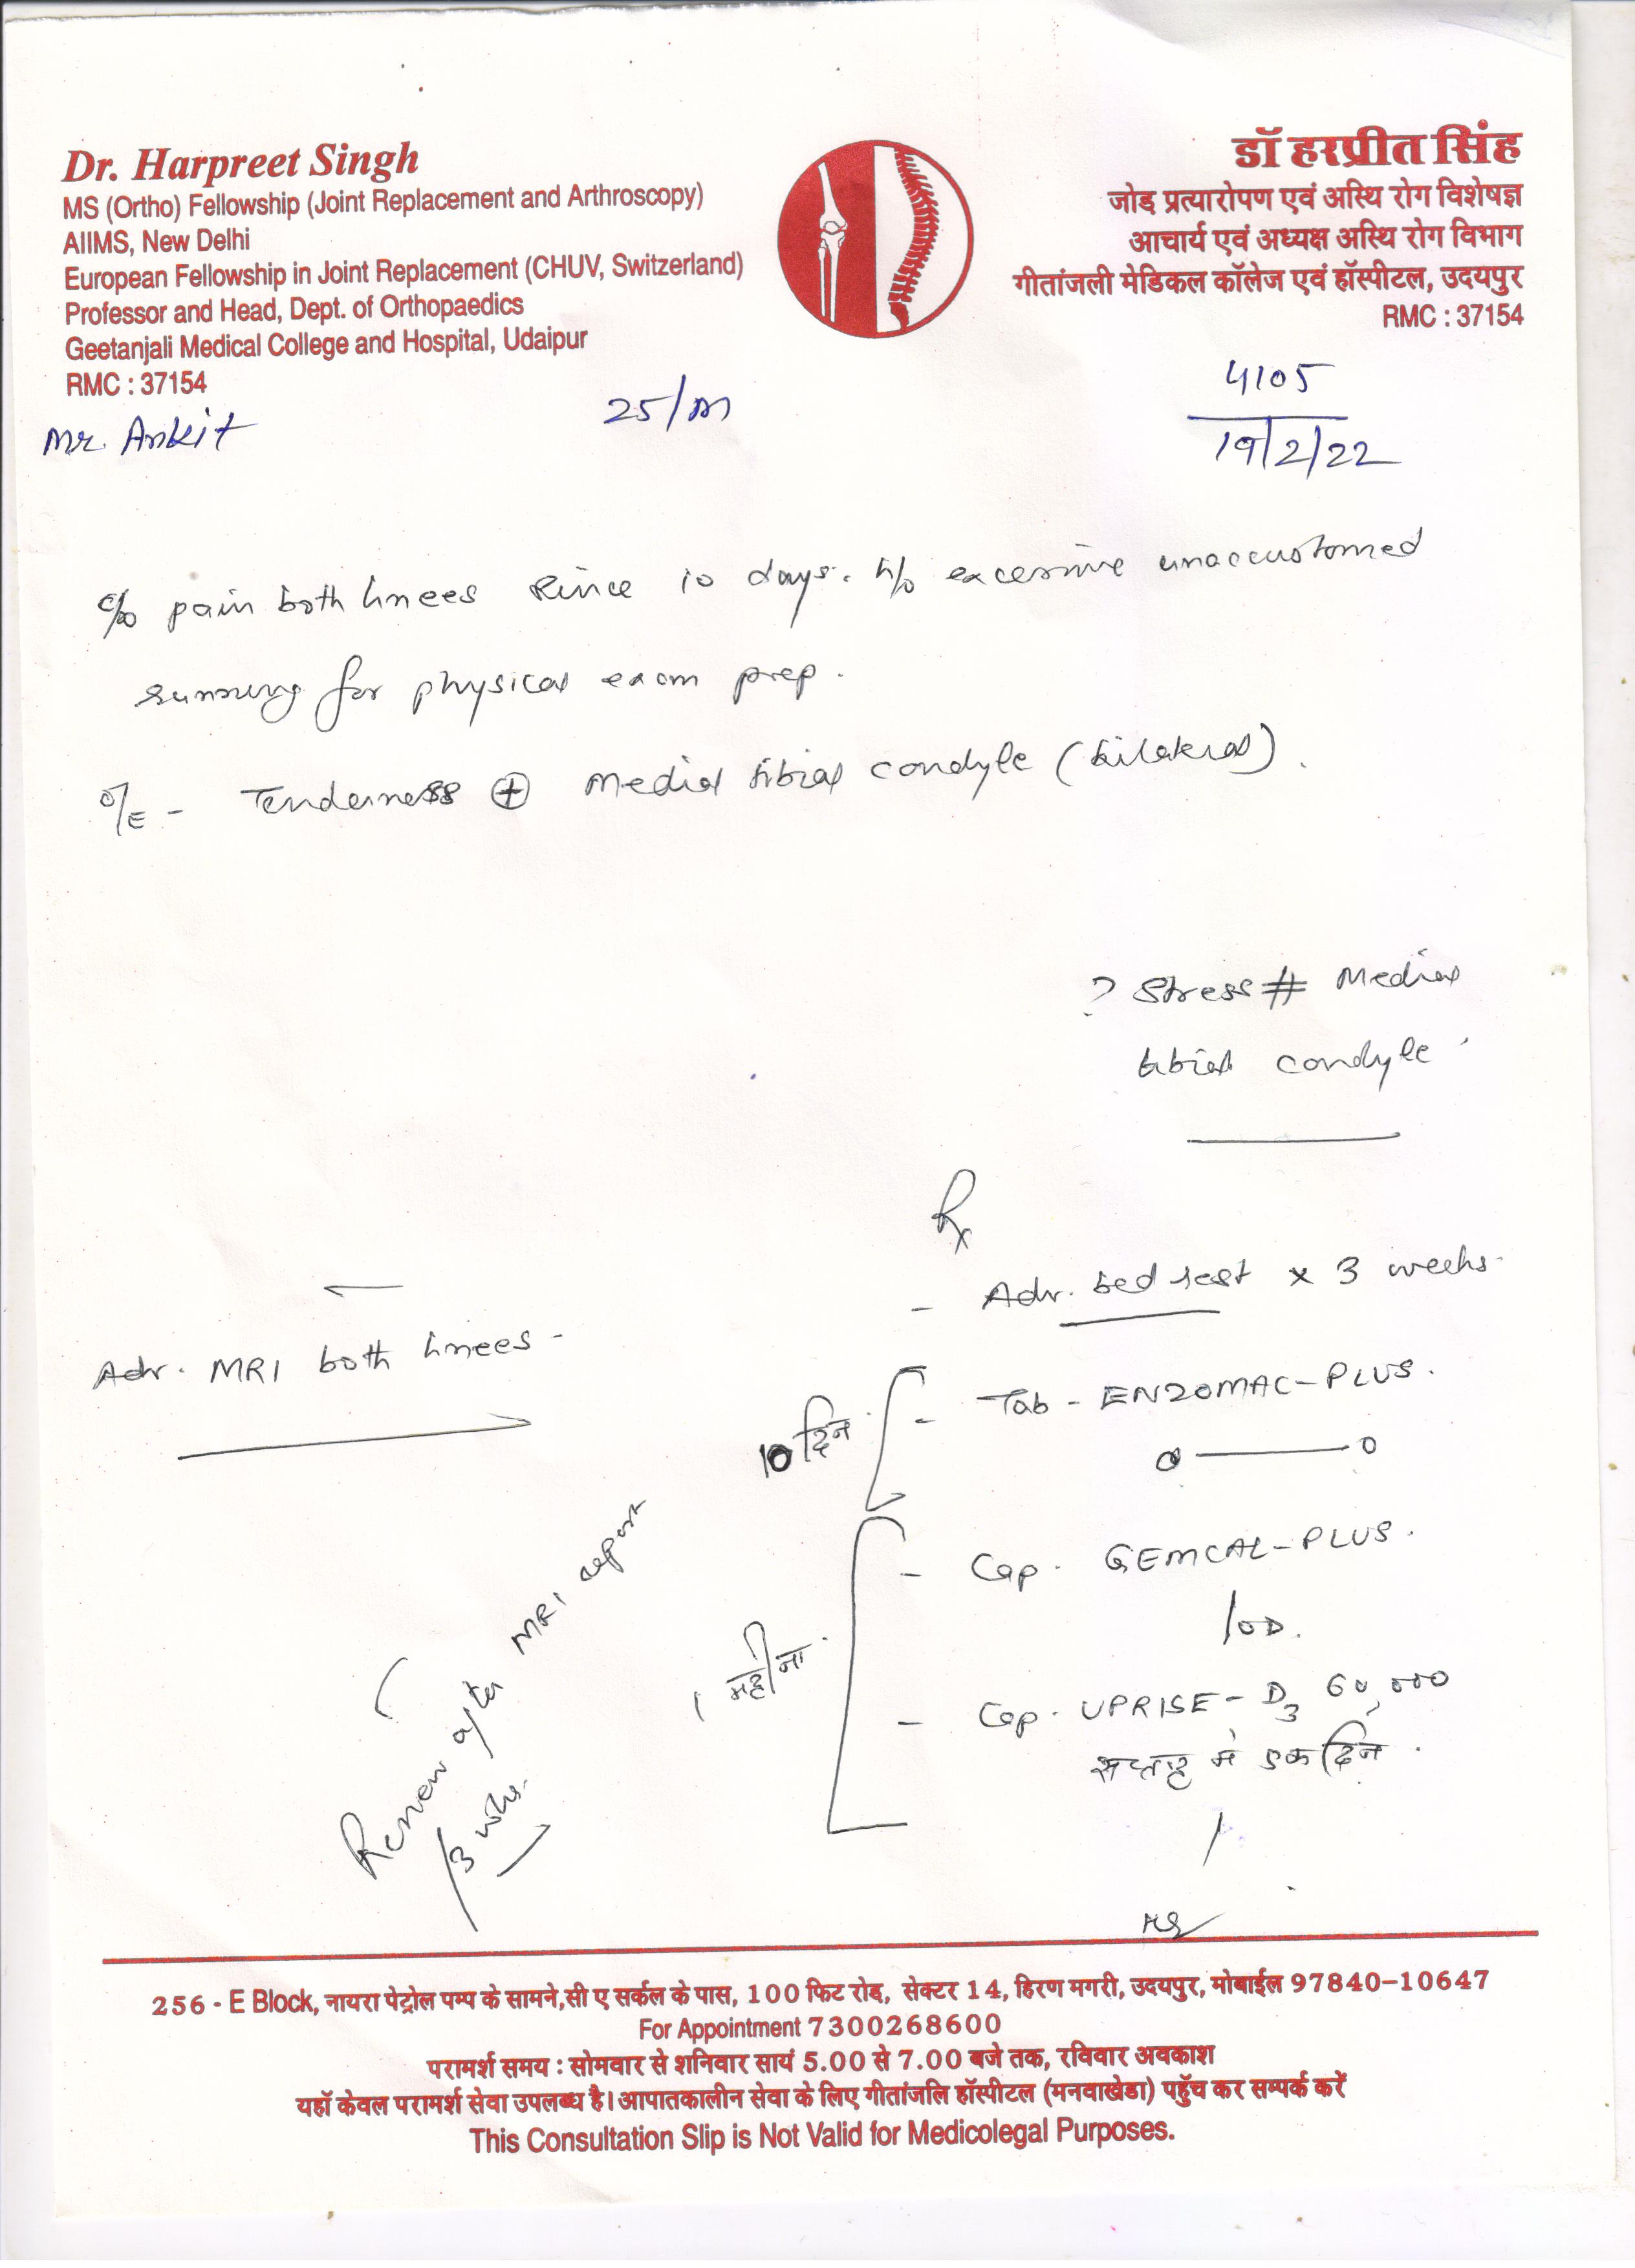 Dr. Harpreet Singh
MS (Ortho) Fellowship (Joint Replacement and Arthroscopy)
AIIMS, New Delhi
European Fellowship in Joint Replacement (CHUV, Switzerland)
Professor and Head, Dept. of Orthopaedics
Geetanjali Medical College and Hospital, Udaipur
RMC : 37154
डॉ हरप्रीत सिंह
जोड प्रत्यारोपण एवं अस्थि रोग विशेषज्ञ
आचार्य एवं अध्यक्ष अस्थि रोग विभाग
गीतांजली मेडिकल कॉलेज एवं हॉस्पीटल, उदयपुर
RMC : 37154
Mr. Ankit 25/M
4105
19/2/22
c/o pain both knees since 10 days. h/o excessive unaccustomed
running for physical exam prep.
O/E - Tenderness ⊕ medial tibial condyle (bilateral).
? Stress # medial
tibial condyle
Rx
- Adv. bed rest x 3 weeks.
Adv. MRI both knees -
10 दिन
- Tab - ENZOMAC-PLUS.
o — o
- Cap. GEMCAL-PLUS.
1 OD.
1 महीना
- Cap. UPRISE- D3 60,000
सप्ताह में एक दिन.
Review after MRI report
/3 wks.
HS
256 - E Block, नायरा पेट्रोल पम्प के सामने,सी ए सर्कल के पास, 100 फिट रोड, सेक्टर 14, हिरण मगरी, उदयपुर, मोबाईल 97840-10647
For Appointment 7300268600
परामर्श समय : सोमवार से शनिवार सायं 5.00 से 7.00 बजे तक, रविवार अवकाश
यहॉ केवल परामर्श सेवा उपलब्ध है। आपातकालीन सेवा के लिए गीतांजलि हॉस्पीटल (मनवाखेडा) पहुँच कर सम्पर्क करें
This Consultation Slip is Not Valid for Medicolegal Purposes.